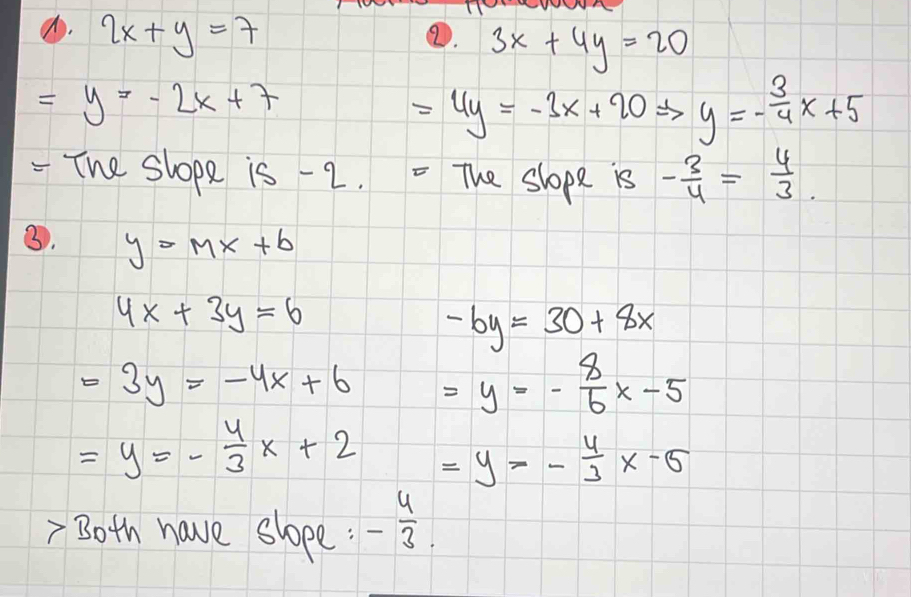 1. 2x + y = 7
= y = -2x + 7
= The slope is -2.
2. 3x + 4y = 20
= 4y = -3x + 20 => y = -3/4 x + 5
= The slope is -3/4 = 4/3.
3. y = mx + b
4x + 3y = 6
= 3y = -4x + 6
= y = -4/3 x + 2
-6y = 30 + 8x
= y = -8/6 x - 5
= y = -4/3 x - 5
> Both have slope: -4/3.